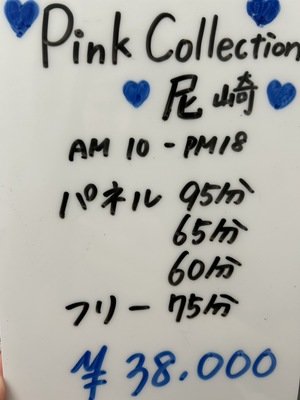 Pink Collection
尼崎
AM 10 - PM18
パネル 95分
65分
60分
フリー 75分
¥38.000